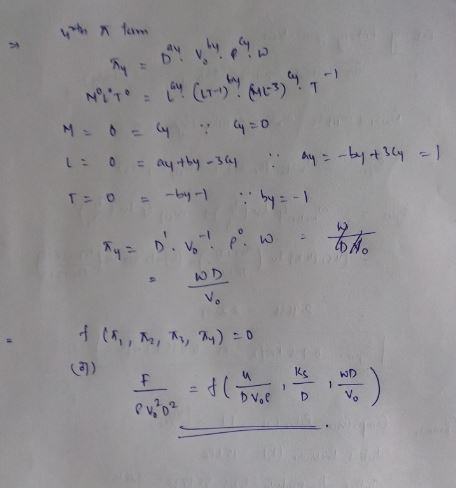 ⇒ 4th π term
π₄ = D^a₄ · V₀^b₄ · ρ^c₄ · ω
M⁰L⁰T⁰ = L^a₄ · (LT⁻¹)^b₄ · (ML⁻³)^c₄ · T⁻¹
M = 0 = c₄ ∵ c₄ = 0
L = 0 = a₄ + b₄ - 3c₄ ∵ a₄ = -b₄ + 3c₄ = 1
T = 0 = -b₄ - 1 ∵ b₄ = -1
π₄ = D¹ · V₀⁻¹ · ρ⁰ · ω =
= ωD / V₀
= f (π₁, π₂, π₃, π₄) = 0
F / ρV₀²D² = f ( μ / DV₀ρ , Ks / D , ωD / V₀ )